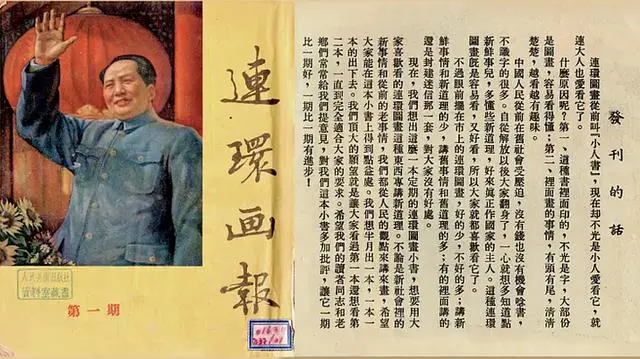 連環画報
人民美術出版社
資料室藏書
第一期
發刊的話
連環圖畫從前叫「小人書」，現在却不光是小人愛看它，就
連大人也愛看它了。
什麼原因呢？第一、這種書裡面印的，不光是字，大部份
是圖畫，容易看得懂；第二、裡面畫的事情，有頭有尾，清清
楚楚，越看越有趣味。
中國人民從前在舊社會受壓迫，沒有錢也沒有機會唸書，
不識字的很多。自從解放以後大家翻身了，一心就想多知道點
新鮮事兒，多懂些新道理，好來眞正作國家的主人。這種連環
圖畫旣是容易看，又好看，所以大家就都喜歡看它了。
不過眼前擺在市上的連環圖畫，好的少，不好的多；講新
鮮事情和新道理的少，講舊事情和舊道理的多；有的裡面講的
還是封建迷信那一套，對大家沒有好處。
現在，我們想出這麼一本定期的連環圖畫小書，想要用大
家喜歡看的連環圖畫這種東西專講新道理。不論是新社會裡的
新事情和從前的老事情，我們都從人民的觀點來講來畫，希望
大家能在這本小書上得到點益處。我們想半月出一本，一本一
本的出下去。我們頂大的願望就是讓大家看過第一本還想看第
二本，一直到完全適合大家的要求。希望我們的讀者同志和老
鄉們常常給我們提意見，對我們這本小書多加批評，讓它一期
比一期好，一期比一期有進步！